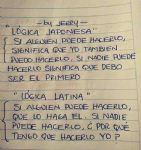 — by JERRY —
"LÓGICA JAPONESA"
SI ALGUIEN PUEDE HACERLO,
SIGNIFICA QUE YO TAMBIEN
PUEDO HACERLO, SI NADIE PUEDE
HACERLO SIGNIFICA QUE DEBO
SER EL PRIMERO
"LÓGICA LATINA"
SI ALGUIEN PUEDE HACERLO,
QUE LO HAGA EL. SI NADIE
PUEDE HACERLO, ¿POR QUÉ
TENGO QUE HACERLO YO?